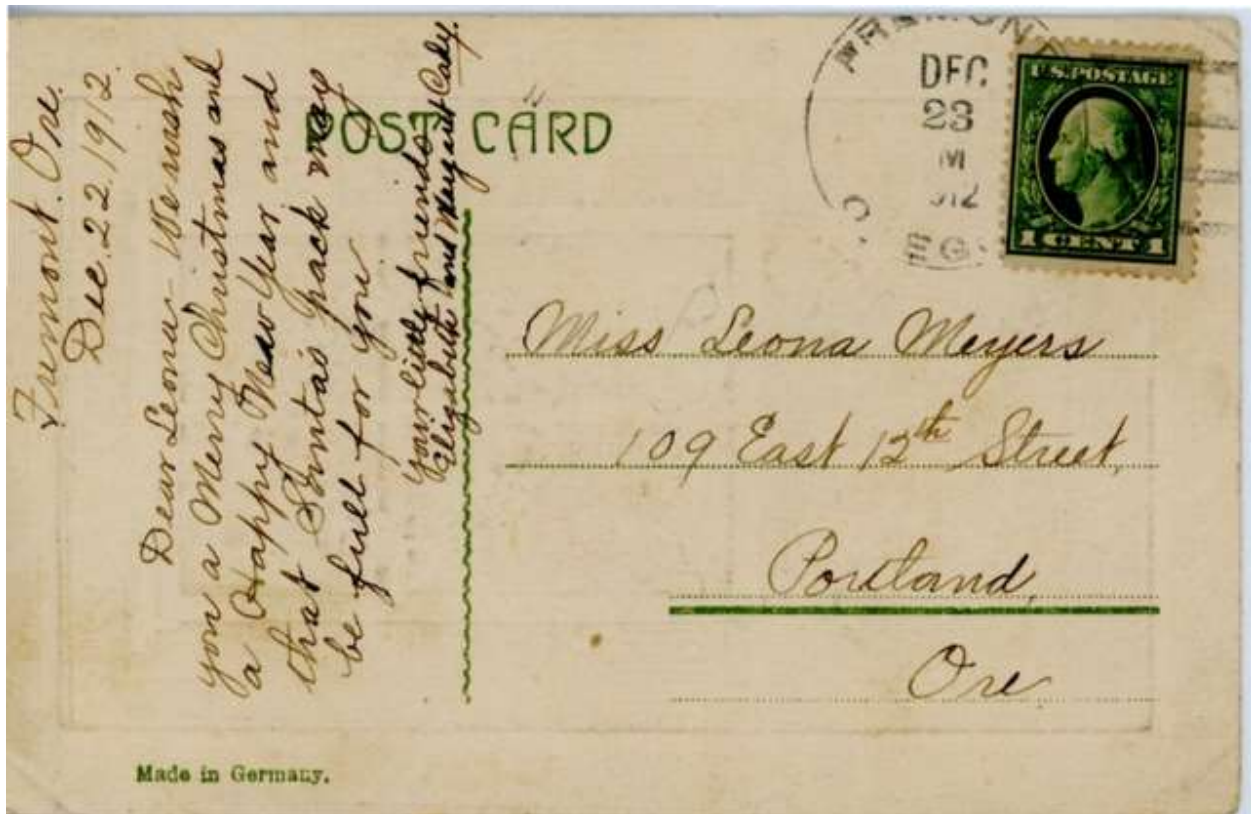 Fremont. Ore.
Dec. 22. 1912.
Dear Leona - We wish
you a Merry Christmas and
a Happy New Year and
that Santa's pack may
be full for you.
Your little friends
Elizabeth and Margaret Cady.
POST CARD
FREMONT
DEC
23
M
912
U.S. POSTAGE
1 CENT 1
Miss Leona Meyers
109 East 12th Street,
Portland,
Ore
Made in Germany.